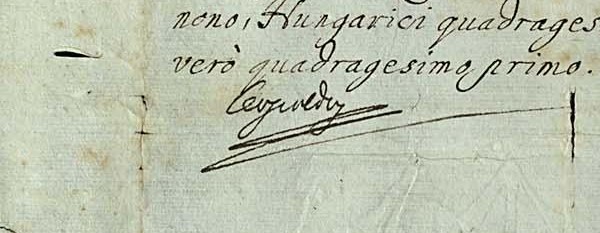 nono, Hungarici quadrages
verò quadragesimo primo.
Leopoldus